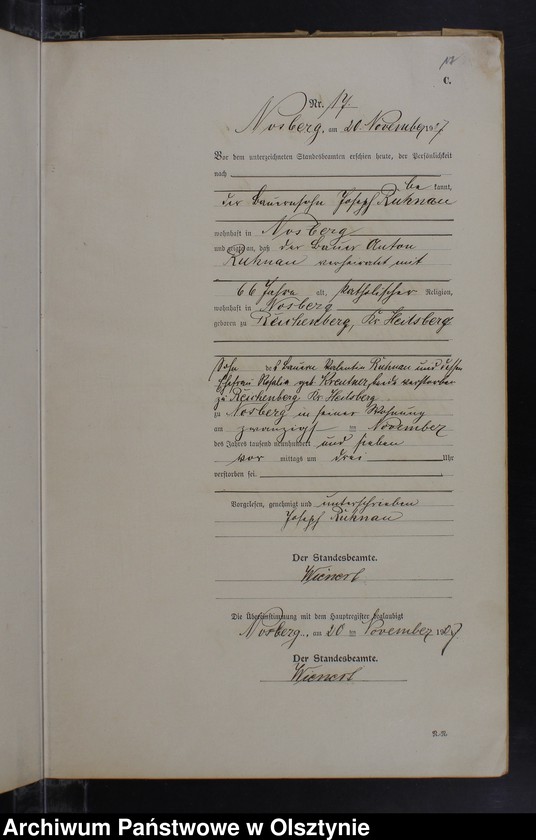 C.
Nr. 17
Nosberg, am 20. November 1907
Vor dem unterzeichneten Standesbeamten erschien heute, der Persönlichkeit
nach
be kannt,
der Bauernsohn Joseph Ruhnau
wohnhaft in Nosberg
und zeigte an, daß der Bauer Anton
Ruhnau verheiratet mit
66 Jahre alt, katholischer Religion,
wohnhaft in Nosberg
geboren zu Reichenberg, Kr Heilsberg
Sohn des Bauern Valentin Ruhnau und dessen
Ehefrau Rosalia geb Kreutner beide verstorben
zu Reichenberg Kr Heilsberg
zu Nosberg in seiner Wohnung
am zwanzigst en November
des Jahres tausend neunhundert und sieben
vor mittags um drei Uhr
verstorben sei.
Vorgelesen, genehmigt und unterschrieben
Joseph Ruhnau
Der Standesbeamte.
Die Übereinstimmung mit dem Hauptregister beglaubigt
Nosberg, am 20 ten November 1907
Der Standesbeamte.
R.-R.
Archiwum Państwowe w Olsztynie